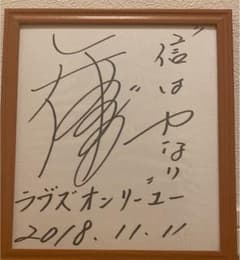 "信は
やはり"
ラヴズオンリーユー
2018.11.11